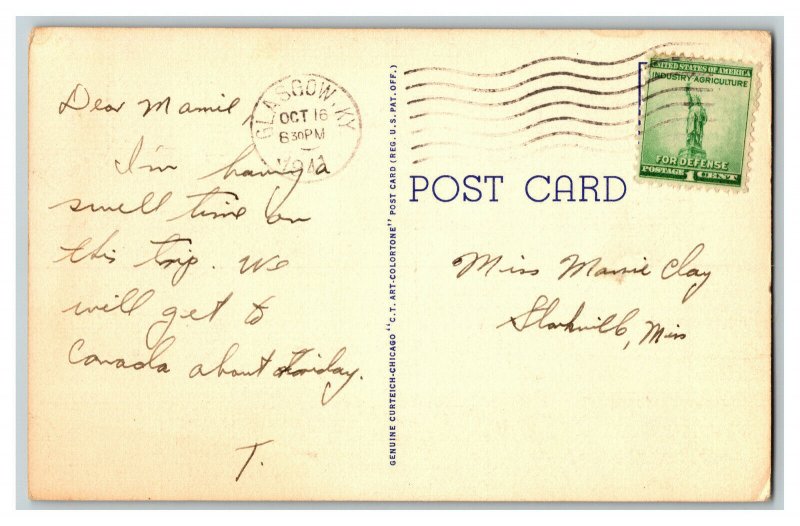 Dear Mamie,
I'm having a
swell time on
this trip. We
will get to
Canada about Friday.
T.
GLASGOW, KY
OCT 16
6 30 PM
1941
GENUINE CURTEICH-CHICAGO "C.T. ART-COLORTONE" POST CARD (REG. U.S. PAT. OFF.)
POST CARD
UNITED STATES OF AMERICA
INDUSTRY AGRICULTURE
FOR DEFENSE
POSTAGE 1 CENT
Miss Mamie Clay
Starkville, Miss